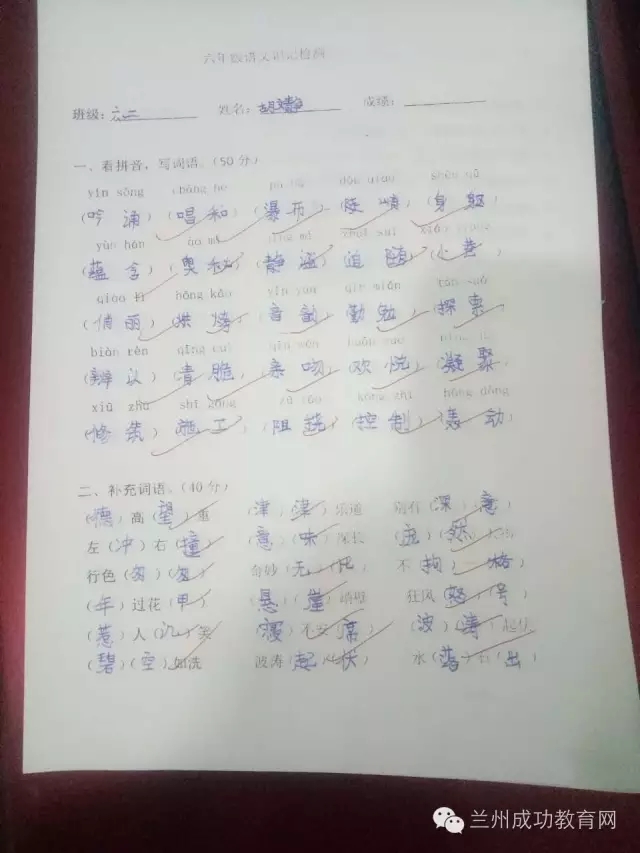 六年级语文词语检测
班级：六二 姓名：胡文静 成绩：
一、看拼音，写词语。（50分）
yín sòng chàng hè pù bù dǒu qiào shēn qū
（吟 诵）（唱 和）（瀑 布）（陡 峭）（身 躯）
yùn hán ào mì
（蕴 含）（奥 秘）（静 谧）（追 随）（小 巷）
qiào hōng kǎo yīn yùn qín miǎn tàn suǒ
（俏 丽）（烘 烤）（音 韵）（勤 勉）（探 索）
biàn rèn
（辨 认）（清 脆）（亲 吻）（欢 悦）（凝 聚）
xiū zhù shī gōng zǔ kòng zhì hōng dòng
（修 筑）（施 工）（阻 （控 制）（轰 动）
二、补充词语。（40分）
（德）高（望）重 （津）（津）乐道 别有（深）（意）
左（冲）右（撞） （意）（味）深长
行色（匆）（匆） 奇妙（无）（比） 不（拘）一（格）
（年）过花（甲） （悬）（崖）峭壁 狂风（怒）（号）
（惹）人（ ）笑 不安（席） （波）（涛）起伏
（碧）（空）如洗 波涛（起）（伏） 水（落）石（出）
兰州成功教育网